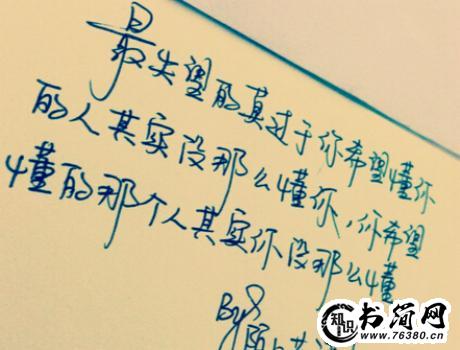 最失望的莫过于你希望懂你
的人其实没那么懂你,你希望
懂的那个人其实你没那么懂
By
知识 书简网
www.76380.cn